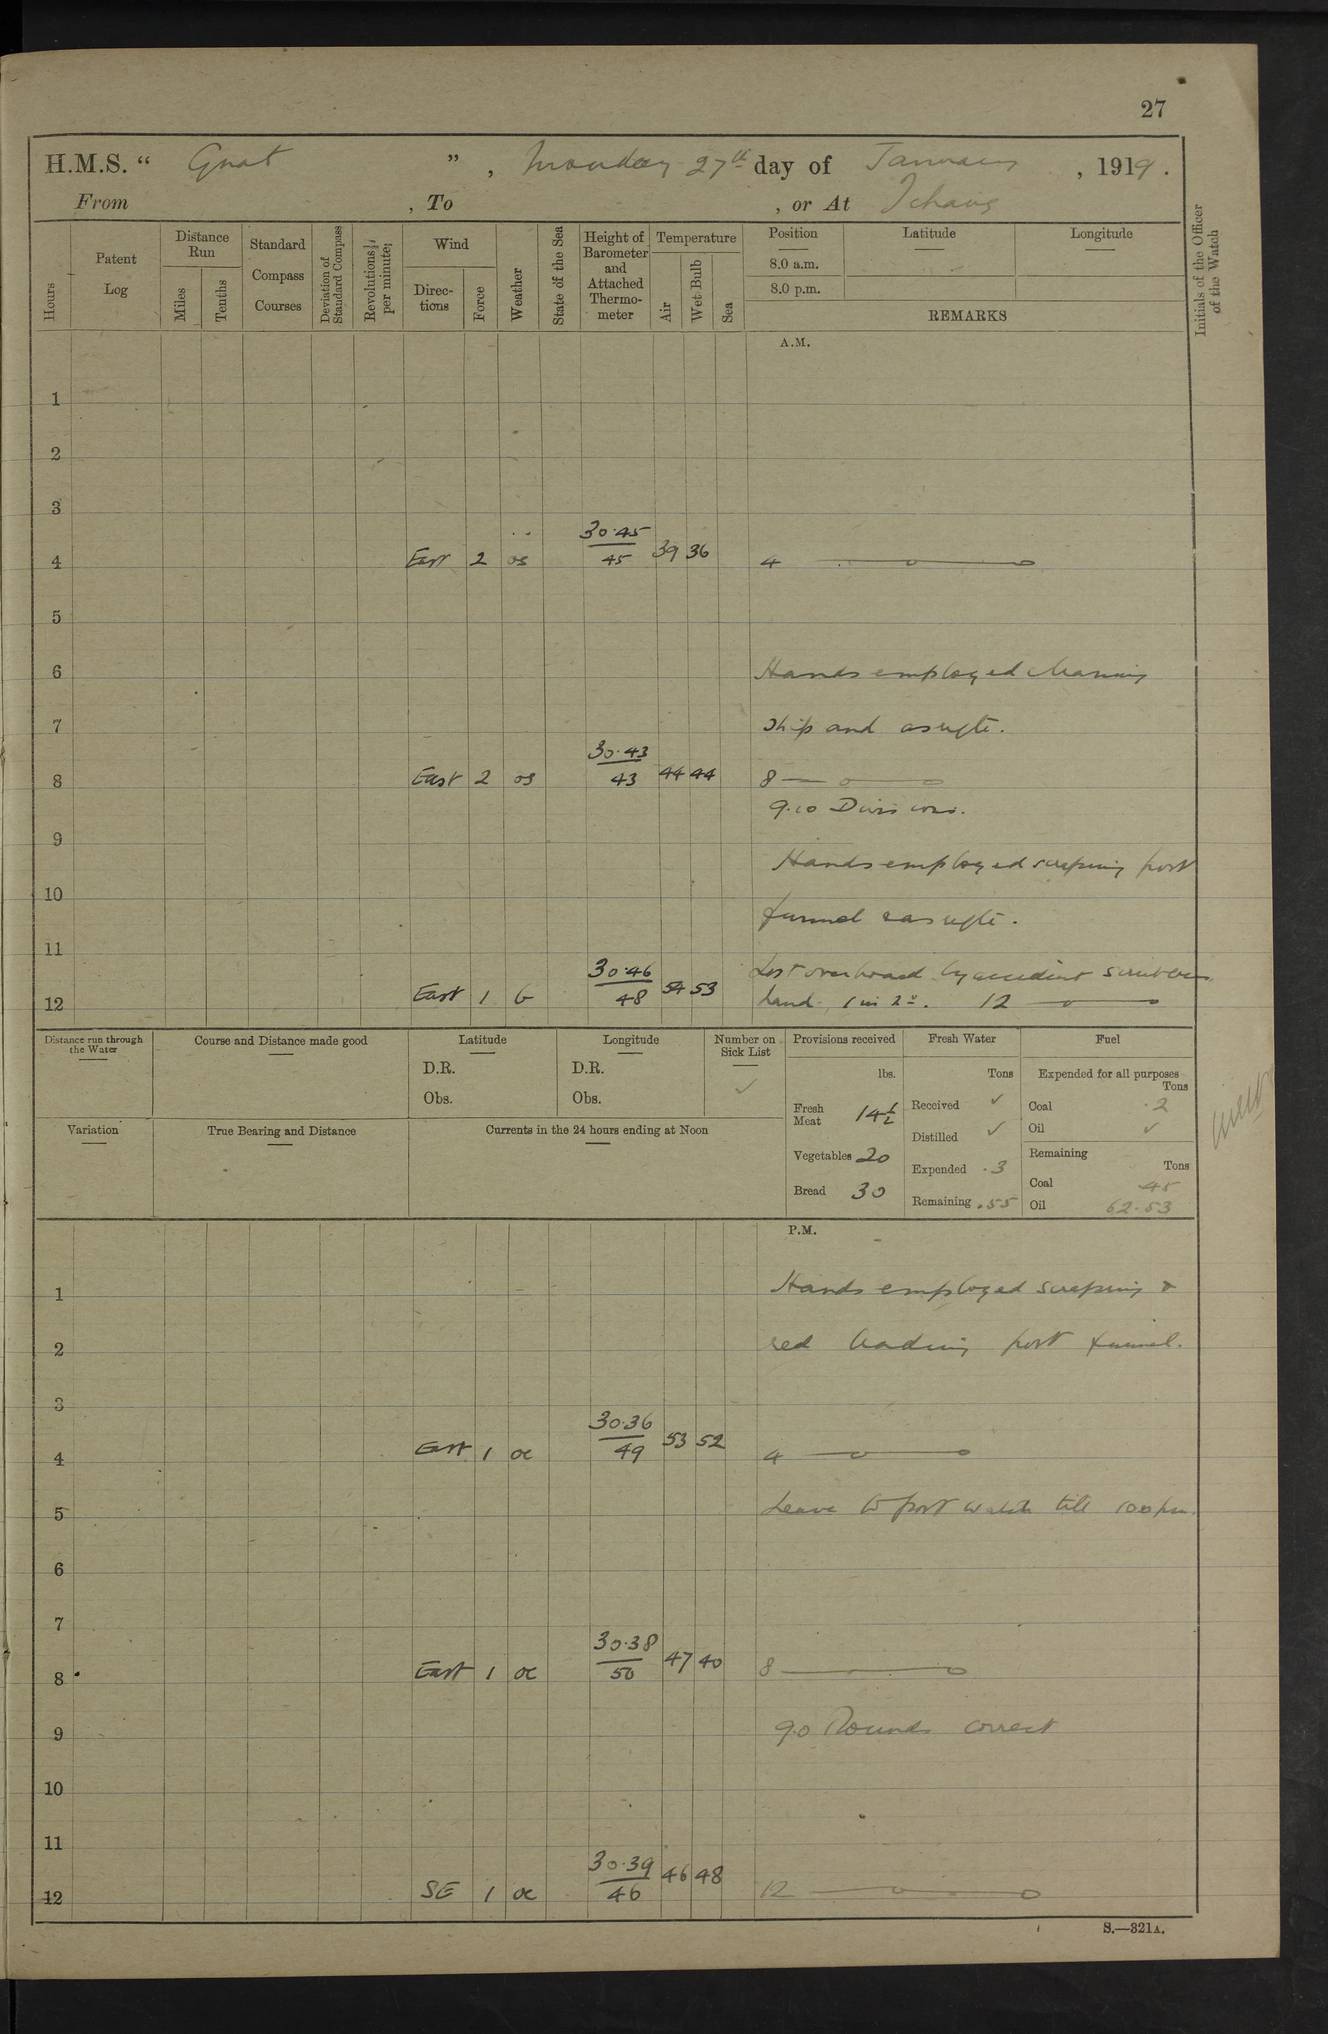 27
H.M.S. “ Gnat ” , Monday 27th day of January , 1919 .
From , To , or At Ichang
Hours
Patent Log
Distance Run
Miles
Tenths
Standard Compass Courses
Deviation of Standard Compass
Revolutions per minute
Wind
Directions
Force
Weather
State of the Sea
Height of Barometer and Attached Thermometer
Temperature
Air
Wet Bulb
Sea
Position
8.0 a.m.
8.0 p.m.
Latitude
Longitude
REMARKS
Initials of the Officer of the Watch
A.M.
1
2
3
30.45
4 East 2 os 45 39 36 4
5
6 Hands employed cleaning
7 ship and as reqte.
30.43
8 East 2 os 43 44 44 8
9.10 Divisions.
9
Hands employed scraping port
10
funnel & as reqte.
11
30.46 Lost overboard by accident scrubbers
12 East 1 b 48 54 53 hand 1 in 2º. 12
Distance run through the Water
Course and Distance made good
Latitude
D.R.
Obs.
Longitude
D.R.
Obs.
Number on Sick List
✓
Provisions received
lbs.
Fresh Meat 14½
Vegetables 20
Bread 30
Fresh Water
Tons
Received ✓
Distilled ✓
Expended .3
Remaining .55
Fuel
Expended for all purposes
Tons
Coal .2
Oil ✓
Remaining
Tons
Coal 45
Oil 62.53
Variation
True Bearing and Distance
Currents in the 24 hours ending at Noon
P.M.
1 Hands employed scraping &
2 red leading port funnel.
3
30.36
4 East 1 oc 49 53 52 4
5 Leave to port watch till 10.0 pm.
6
7
30.38
8 East 1 oc 50 47 40 8
9 9.0 Rounds correct
10
11
30.39
12 SE 1 oc 46 46 48 12
S.—321A.